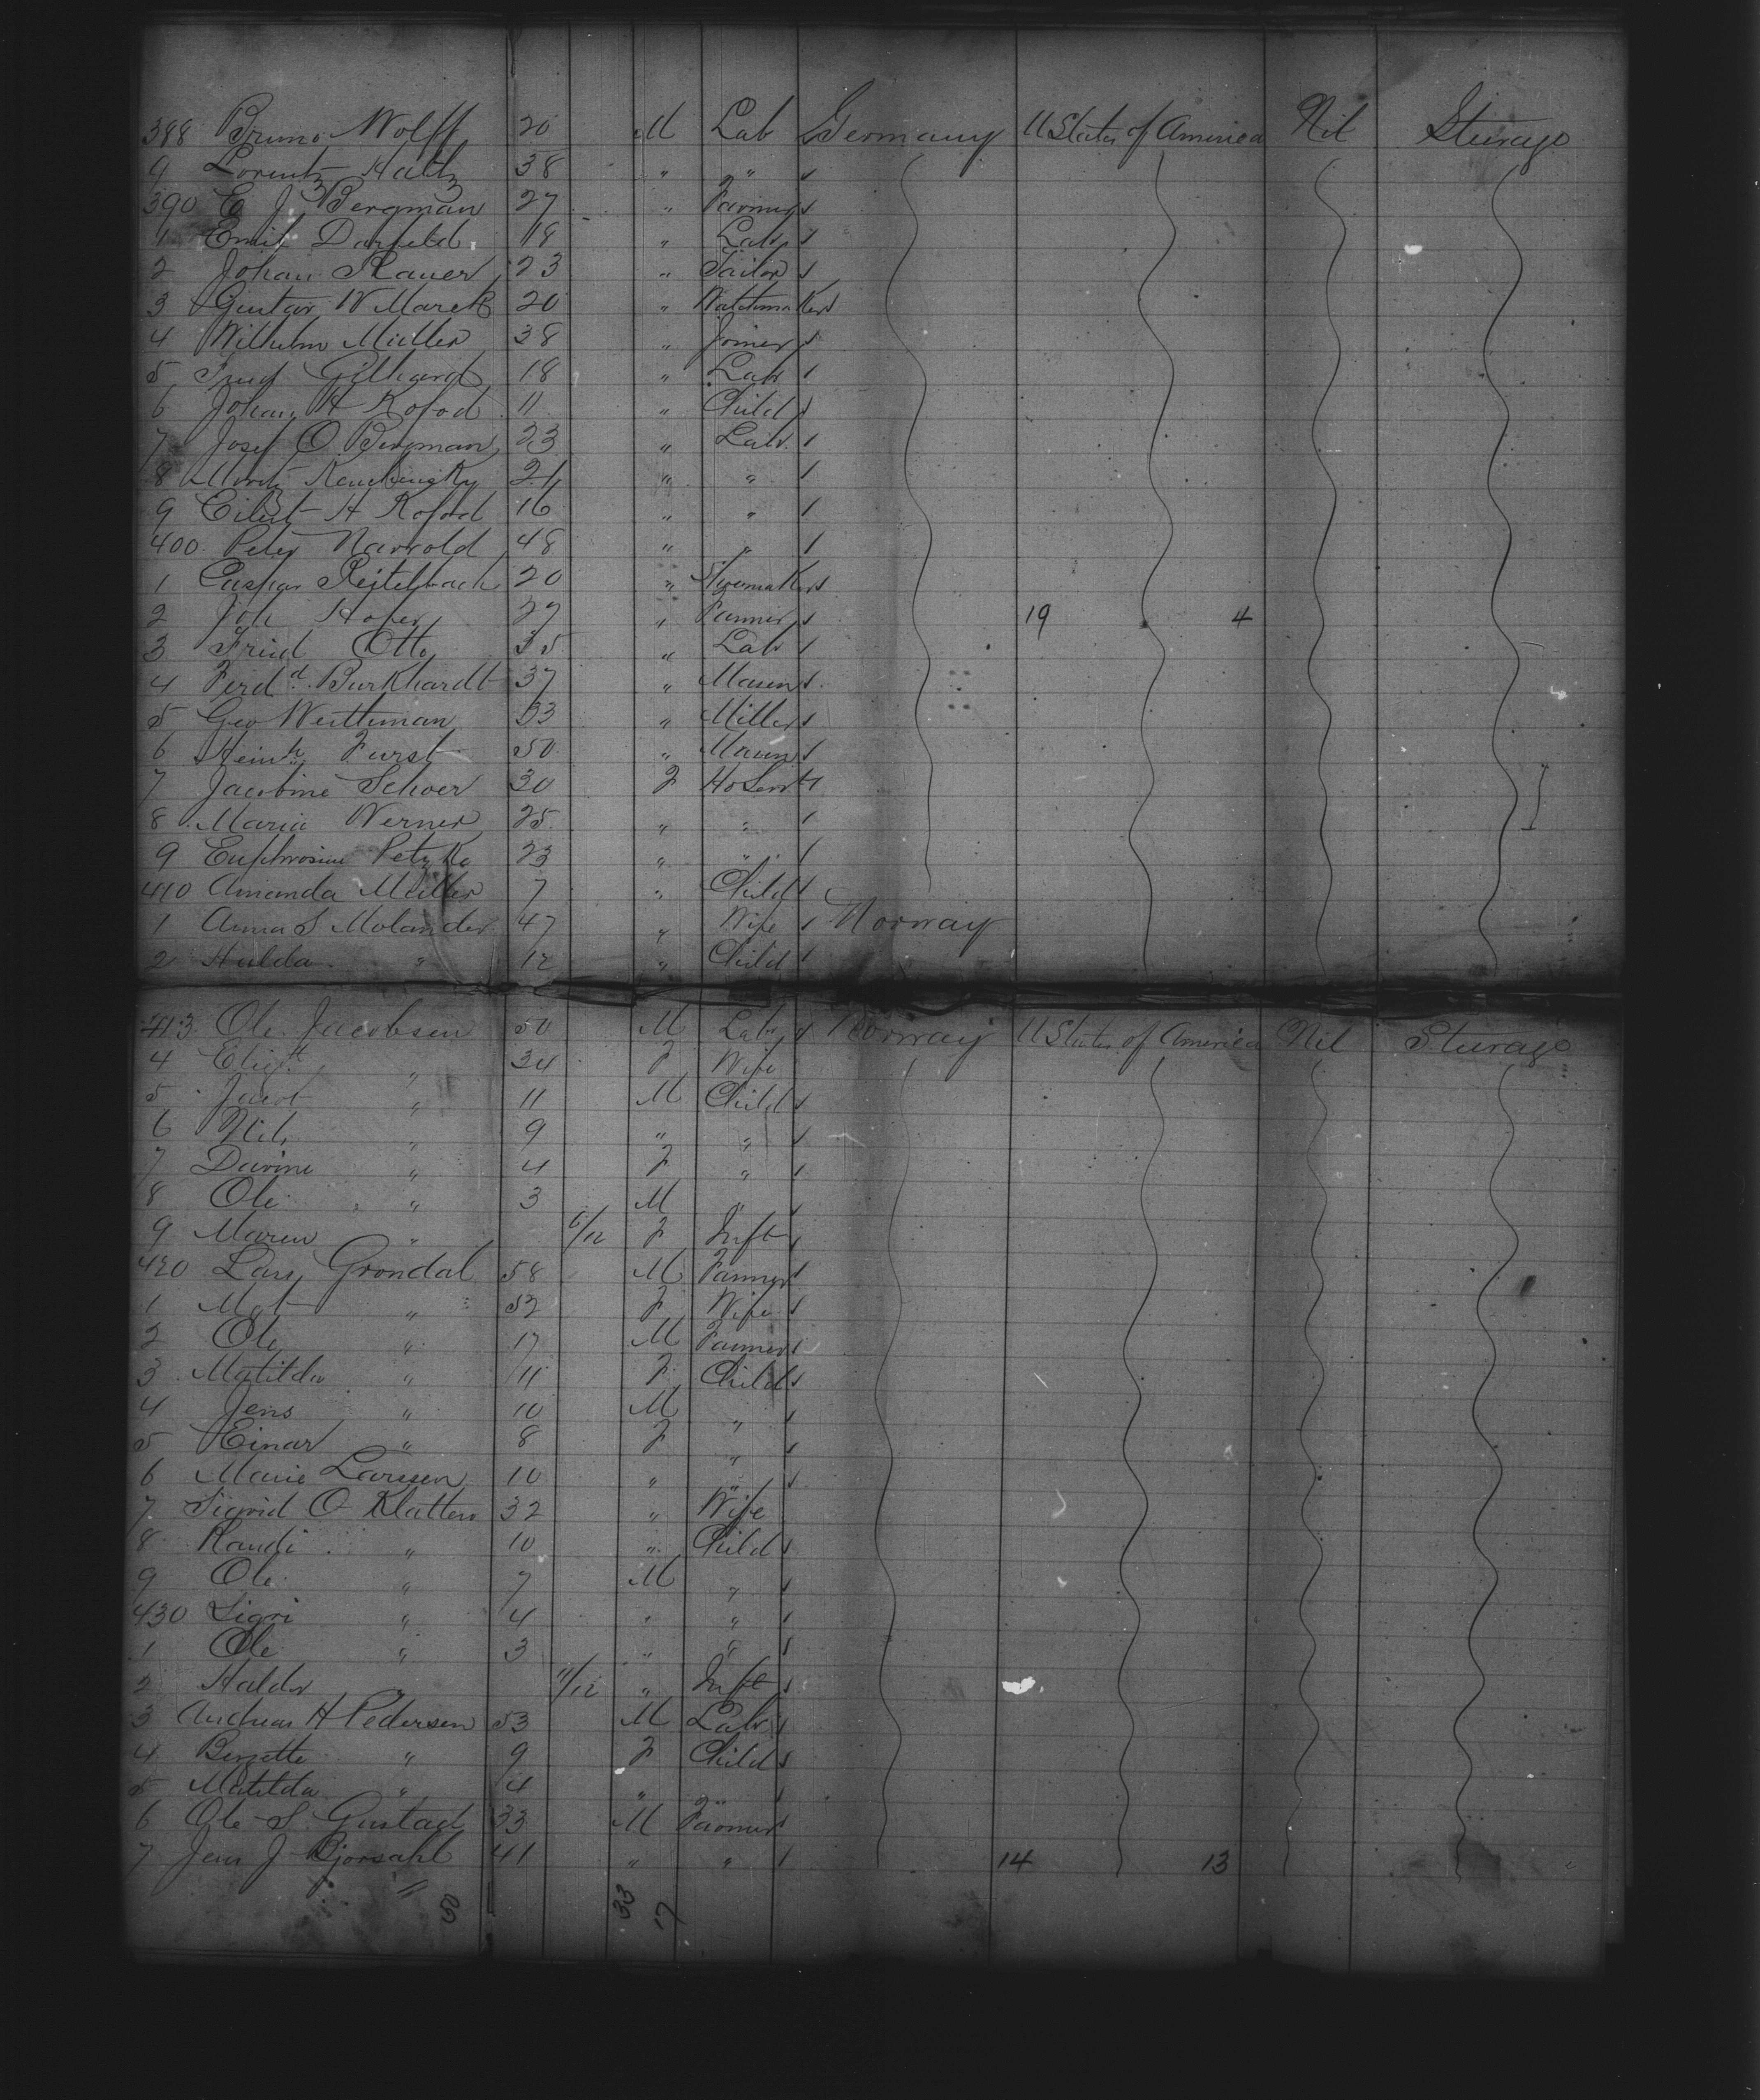 388 Bruno Wolff 20 M Lab Germany U States of America Nil Steerage
9 Lorentz Haltz 38 " "
390 E J Bergman 27 " Farmer
1 Emil Darfeld 18 " Lab
2 Johan Rauer 23 " Tailor
3 Gustav W Marek 20 " Watchmaker
4 Wilhelm Müller 38 " Joiner
5 Fried Gelhard 18 " Lab
6 Johan H Kofod 11 " Child
7 Josef O Bergman 23 " Lab
8 Moritz 21 " "
9 Eilert H Kofod 16 " "
400 Peter Narvold 48 " "
1 Caspar Reitelbach 20 " Shoemaker
2 Joh Hofer 27 " Farmer 19 4
3 Fried Otto 35 " Lab
4 Ferdd Burkhardt 37 " Mason
5 Geo Weithman 33 " Miller
6 Heinh Furst 50 " Mason
7 Jacobine Schoer 30 F Ho Servt
8 Maria Werner 25 " "
9 Euphrosine Petzke 23 " "
410 Amanda Müller 7 " Child
1 Anna S Molander 47 " Wife Norway
2 Hulda " 12 " Child
413 Ole Jacobsen 50 M Lab Norway U States of America Nil Steerage
4 Elizth " 34 F Wife
5 Jacob " 11 M Child
6 Nils " 9 " "
7 Davine " 4 F "
8 Ole " 3 M "
9 Maren " 6/12 F Inft
420 Lars Grondal 58 M Farmer
1 Mgt " 52 F Wife
2 Ole " 17 M Farmer
3 Matilda " 11 F Child
4 Jens " 10 M "
5 Einar " 8 F "
6 Marie Larssen 10 " "
7 Sigrid O Klatten 32 " Wife
8 Randi " 10 " Child
9 Ole " 7 M "
430 Sigri " 4 " "
1 Ole " 3 " "
2 Haldor " 11/12 " Inft
3 Andreas H Pedersen 53 M Lab
4 Bergette " 9 F Child
5 Matilda " 4 " "
6 Ole S Gustad 33 M Farmer
7 Jens J Bjorsahl 41 " " 14 13
50 33 17